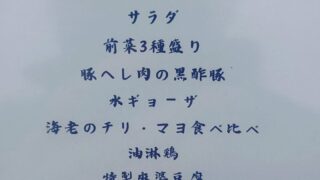 サラダ
前菜3種盛り
豚へし肉の黒酢豚
水ギョーザ
海老のチリ・マヨ食べ比べ
油淋鶏
特製麻婆豆腐